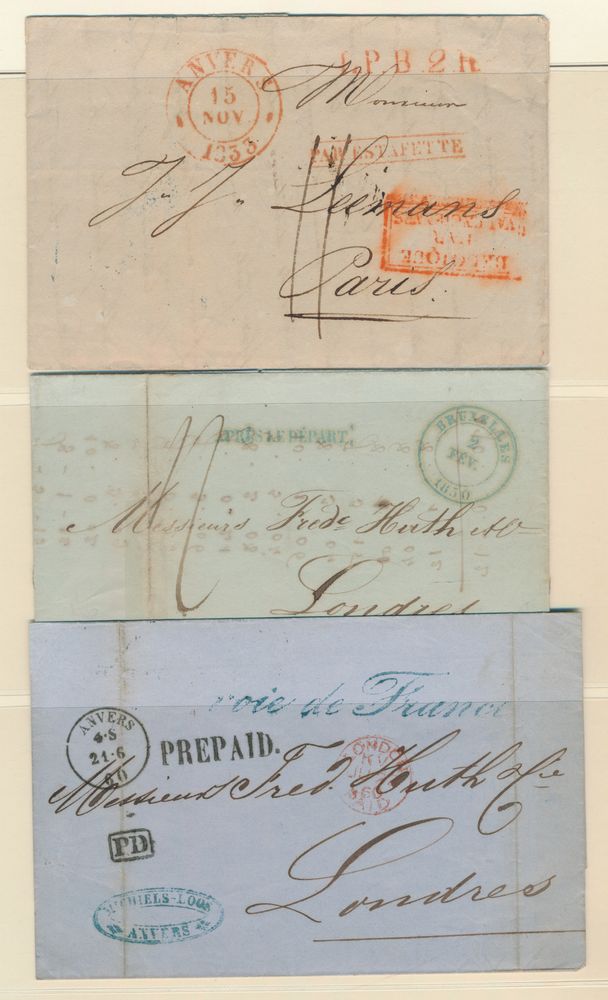 ANVERS
15
NOV
1833
L.P.B.2.R
Monsieur
PAR ESTAFETTE
J. J. Leemans
BELGIQUE
PAR
VALENCIENNES
Paris.
APRES LE DÉPART.
BRUXELLES
2
FEV.
1850
Messieurs Fredc Huth & Co
Londres
voie de France
ANVERS
4-S
21-6
60
PREPAID.
LONDON
PAID
Messieurs Fred. Huth & Cie
PD
MICHIELS-LOOS
ANVERS
Londres